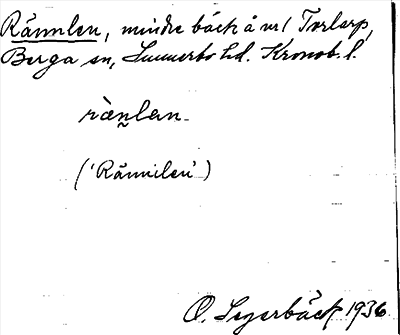 Rännlen, mindre bäck å vr/ Torlarp,
Berga sn, Sunnerbo hd. Kronob. l.
rän̰len.
('Rännilen')
O. Segerbäck, 1936.